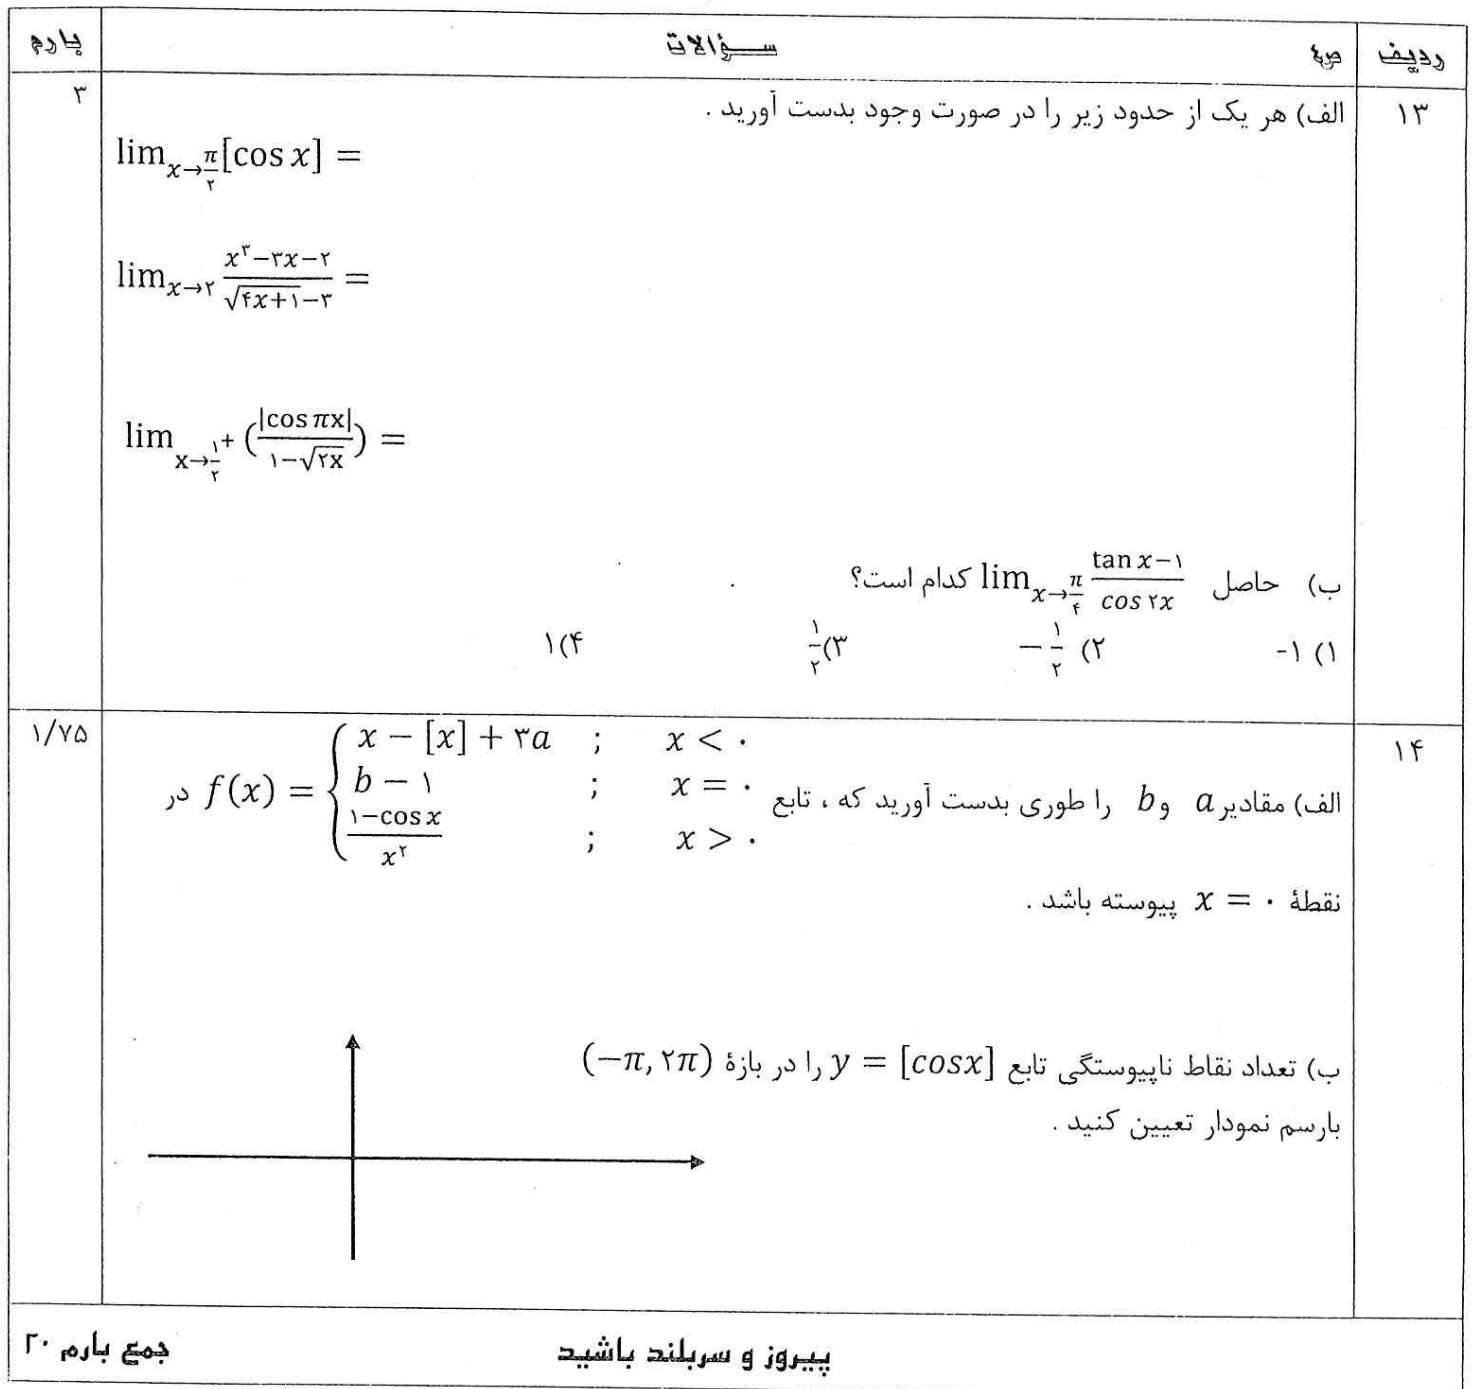 ردیف ص۴ سؤالات بارم
۱۳ الف) هر یک از حدود زیر را در صورت وجود بدست آورید . ۳
lim_{x→π/۲} [cos x] =
lim_{x→۲} (x^۳−۳x−۲)/(√(۴x+۱)−۳) =
lim_{x→۱/۲^+} (|cos πx|/(۱−√(۲x))) =
ب) حاصل lim_{x→π/۴} (tan x−۱)/(cos ۲x) کدام است؟
۱) ۱- ۲) −۱/۲ ۳) ۱/۲ ۴) ۱
۱۴ الف) مقادیر a و b را طوری بدست آورید که ، تابع f(x) = { x − [x] + ۳a ; x < ۰ در ۱/۷۵
b − ۱ ; x = ۰
(۱−cos x)/x^۲ ; x > ۰
نقطهٔ x = ۰ پیوسته باشد .
ب) تعداد نقاط ناپیوستگی تابع y = [cosx] را در بازهٔ (−π, ۲π)
بارسم نمودار تعیین کنید .
پیروز و سربلند باشید جمع بارم ۲۰